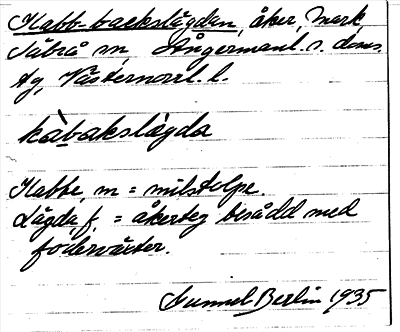 Kabb-backslägdan, åker, Mark,
Säbrå sn, Ångermanl. s. doms.
sg, Västernorrl. l.
kàbakslàgda
Kabbe, m = milstolpe.
Lägda f. = åkerteg besådd med
foderväxter.
Gunnel Berlin 1935